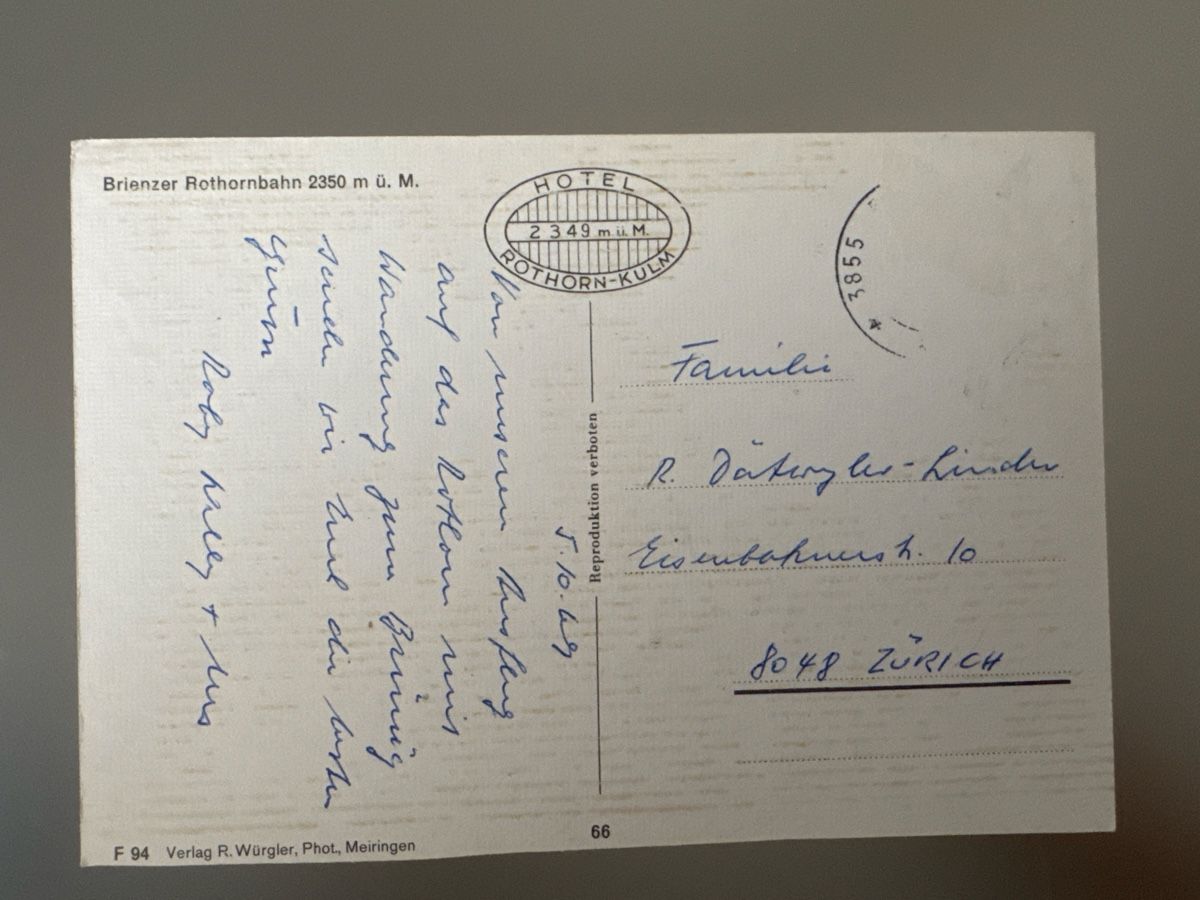 Brienzer Rothornbahn 2350 m ü. M.
HOTEL
2349 m.ü.M.
ROTHORN-KULM
3855
5.10.69
Von unserem Ausflug
auf das Rothorn mit
Wanderung zum Brünig
senden wir Euch die besten
Grüsse
Roby + Urs
Reproduktion verboten
Familie
R. Dätwyler-Linder
Eisenbahnerstr. 10
8048 ZÜRICH
66
F 94 Verlag R. Würgler, Phot., Meiringen